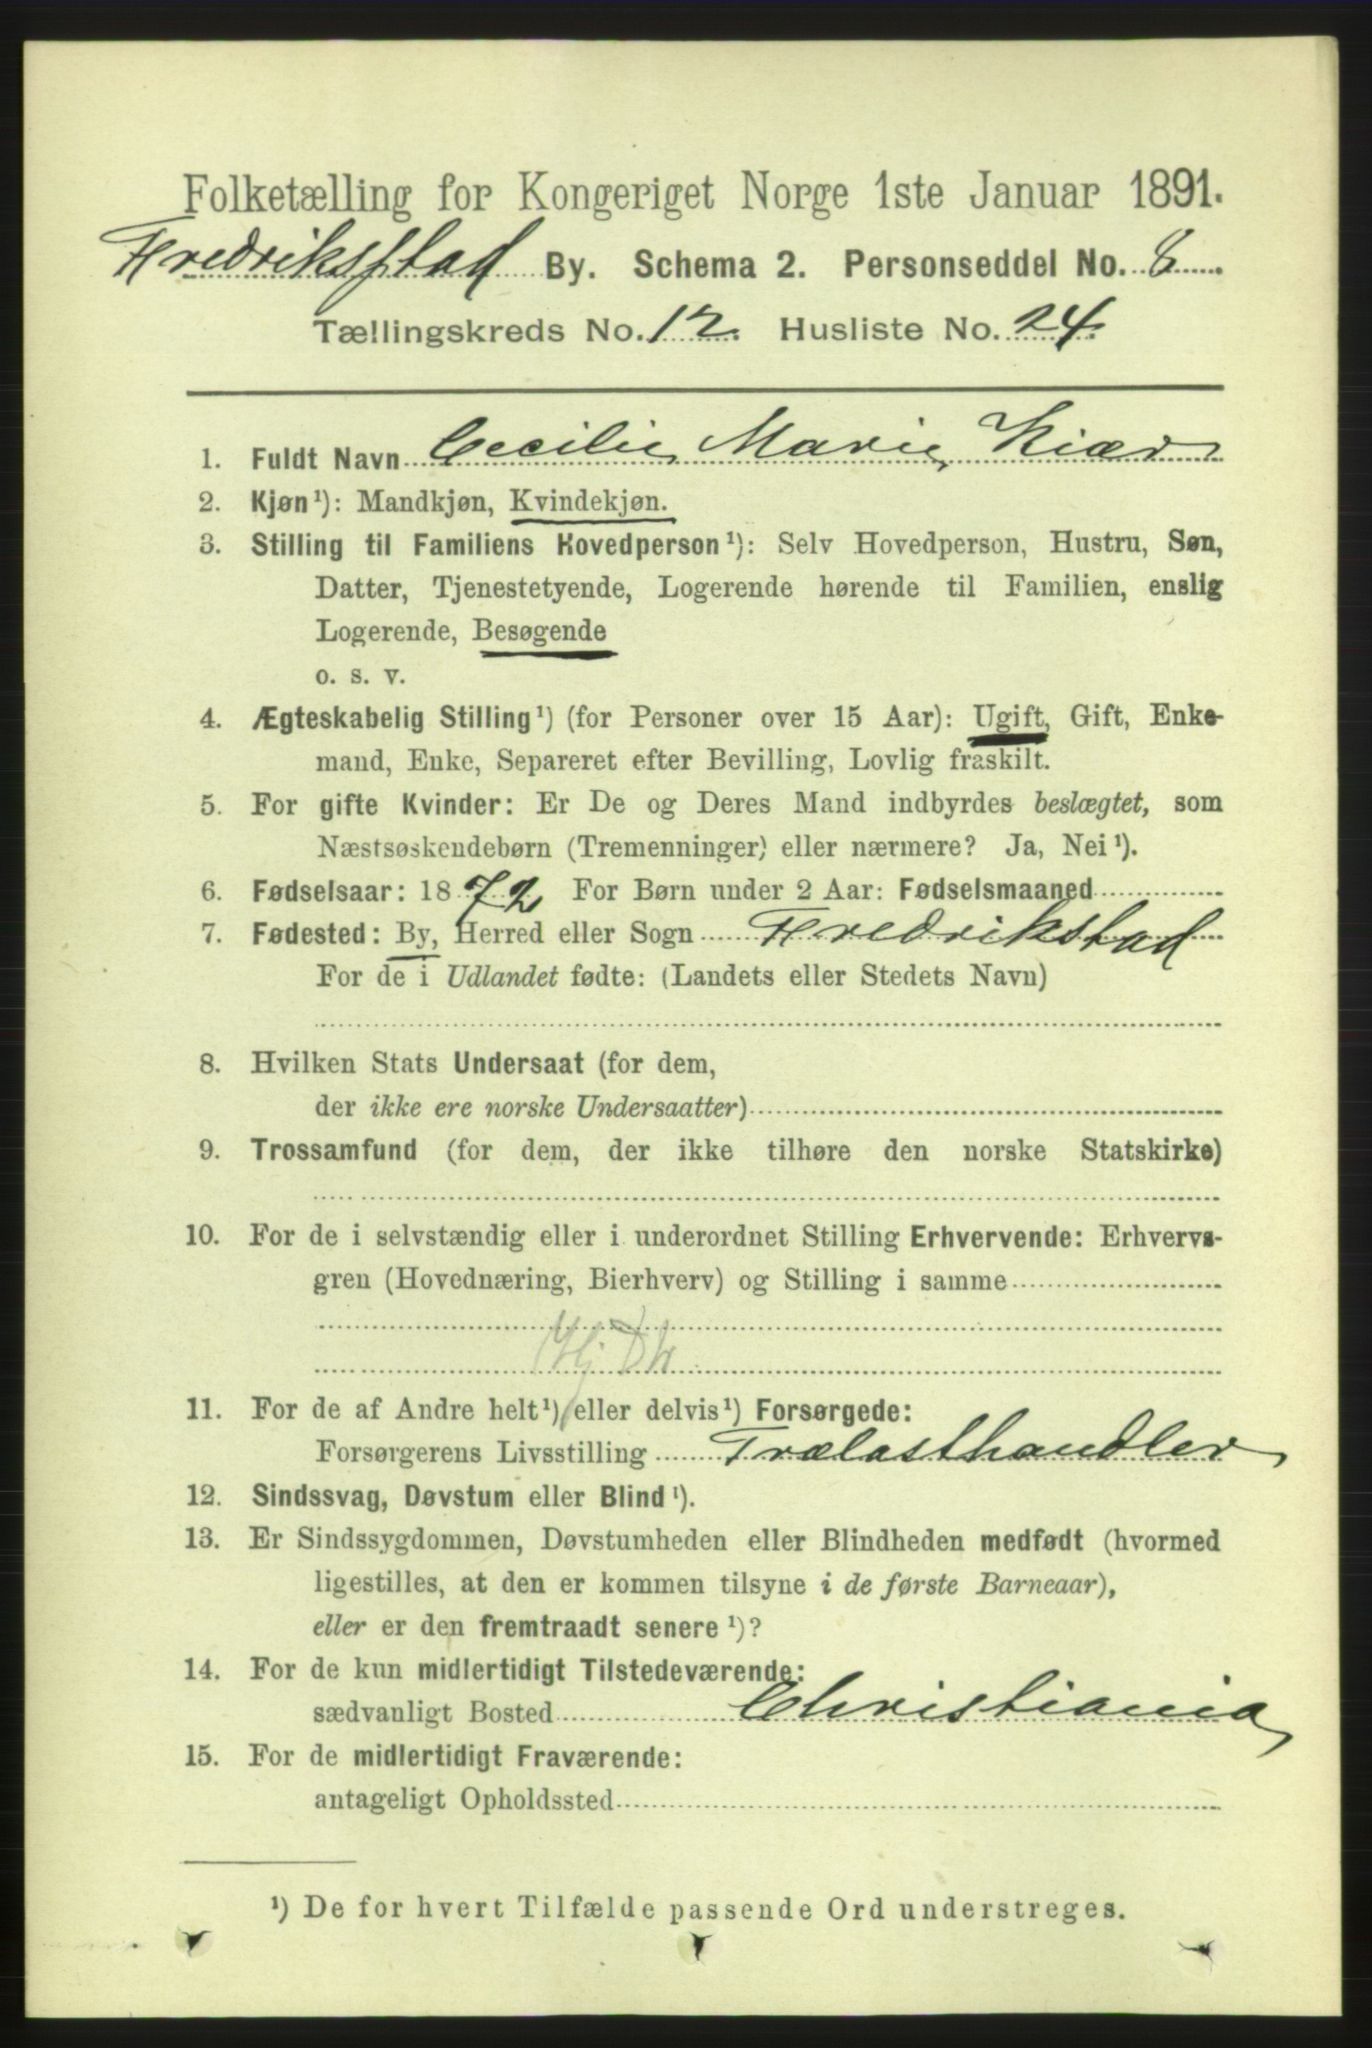 Folketælling for Kongeriget Norge 1ste Januar 1891.
Fredriksstad By. Schema 2. Personseddel No. 8
Tællingskreds No. 12. Husliste No. 24.
1. Fuldt Navn Cecilie Marie Kiær
2. Kjøn¹): Mandkjøn, Kvindekjøn.
3. Stilling til Familiens Hovedperson¹): Selv Hovedperson, Hustru, Søn,
Datter, Tjenestetyende, Logerende hørende til Familien, enslig
Logerende, Besøgende
o. s. v.
4. Ægteskabelig Stilling¹) (for Personer over 15 Aar): Ugift, Gift, Enke-
mand, Enke, Separeret efter Bevilling, Lovlig fraskilt.
5. For gifte Kvinder: Er De og Deres Mand indbyrdes beslægtet, som
Næstsøskendebørn (Tremenninger) eller nærmere? Ja, Nei¹).
6. Fødselsaar: 1872 For Børn under 2 Aar: Fødselsmaaned
7. Fødested: By, Herred eller Sogn Fredrikstad
For de i Udlandet fødte: (Landets eller Stedets Navn)
8. Hvilken Stats Undersaat (for dem,
der ikke ere norske Undersaatter)
9. Trossamfund (for dem, der ikke tilhøre den norske Statskirke)
10. For de i selvstændig eller i underordnet Stilling Erhvervende: Erhvervs-
gren (Hovednæring, Bierhverv) og Stilling i samme
11. For de af Andre helt¹) eller delvis¹) Forsørgede:
Forsørgerens Livsstilling Trælasthandler
12. Sindssvag, Døvstum eller Blind¹).
13. Er Sindssygdommen, Døvstumheden eller Blindheden medfødt (hvormed
ligestilles, at den er kommen tilsyne i de første Barneaar),
eller er den fremtraadt senere¹)?
14. For de kun midlertidigt Tilstedeværende:
sædvanligt Bosted Christiania
15. For de midlertidigt Fraværende:
antageligt Opholdssted
¹) De for hvert Tilfælde passende Ord understreges.